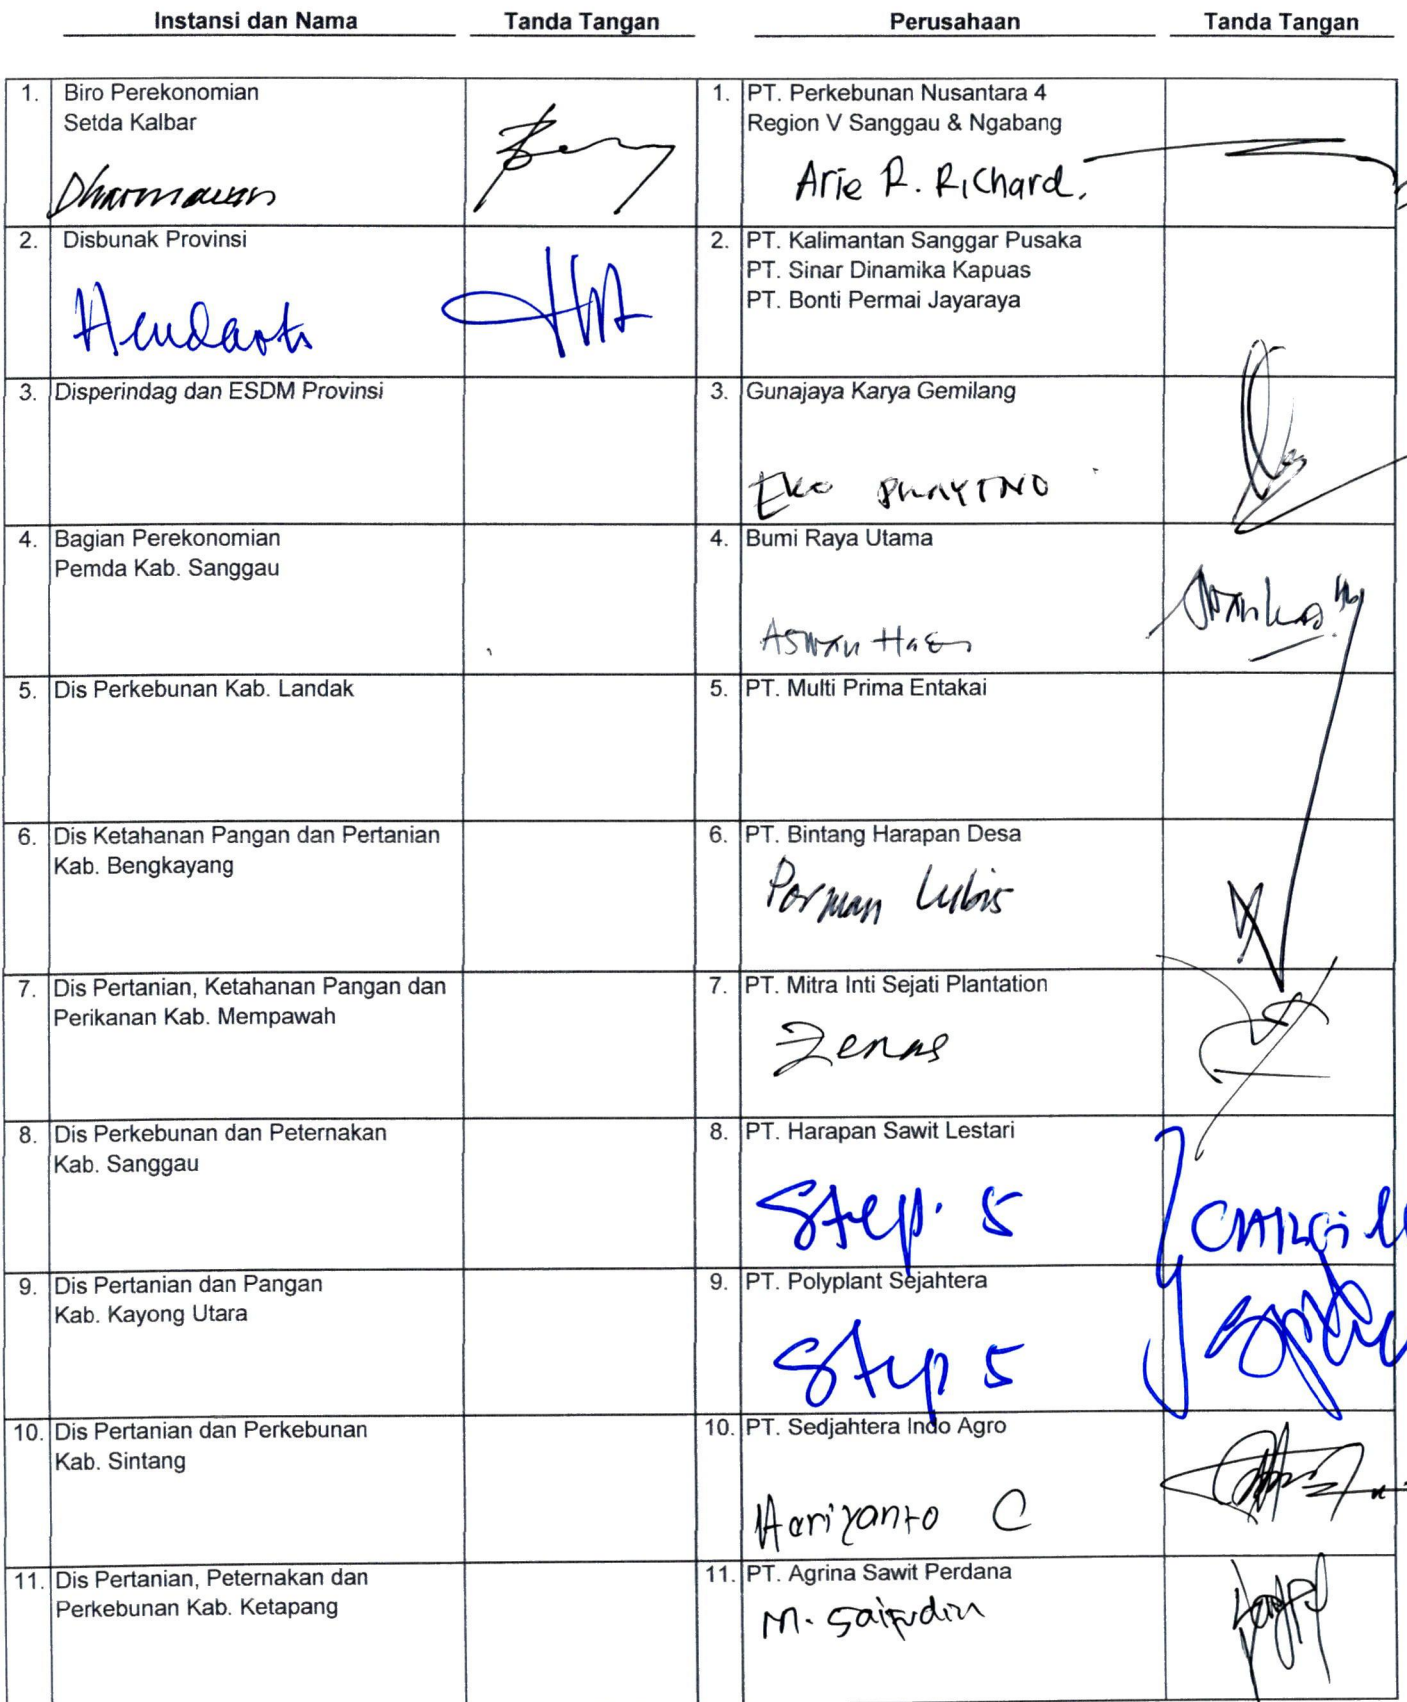 Instansi dan Nama Tanda Tangan Perusahaan Tanda Tangan
1. Biro Perekonomian
Setda Kalbar
Dharmawan
1. PT. Perkebunan Nusantara 4
Region V Sanggau & Ngabang
Arie R. Richard.
2. Disbunak Provinsi
2. PT. Kalimantan Sanggar Pusaka
PT. Sinar Dinamika Kapuas
PT. Bonti Permai Jayaraya
3. Disperindag dan ESDM Provinsi
3. Gunajaya Karya Gemilang
Eko
4. Bagian Perekonomian
Pemda Kab. Sanggau
4. Bumi Raya Utama
5. Dis Perkebunan Kab. Landak
5. PT. Multi Prima Entakai
6. Dis Ketahanan Pangan dan Pertanian
Kab. Bengkayang
6. PT. Bintang Harapan Desa
Porman Lubis
7. Dis Pertanian, Ketahanan Pangan dan
Perikanan Kab. Mempawah
7. PT. Mitra Inti Sejati Plantation
Zenas
8. Dis Perkebunan dan Peternakan
Kab. Sanggau
8. PT. Harapan Sawit Lestari
Step. 5
9. Dis Pertanian dan Pangan
Kab. Kayong Utara
9. PT. Polyplant Sejahtera
Step 5
10. Dis Pertanian dan Perkebunan
Kab. Sintang
10. PT. Sedjahtera Indo Agro
Hariyanto C
11. Dis Pertanian, Peternakan dan
Perkebunan Kab. Ketapang
11. PT. Agrina Sawit Perdana
M. Saifudin